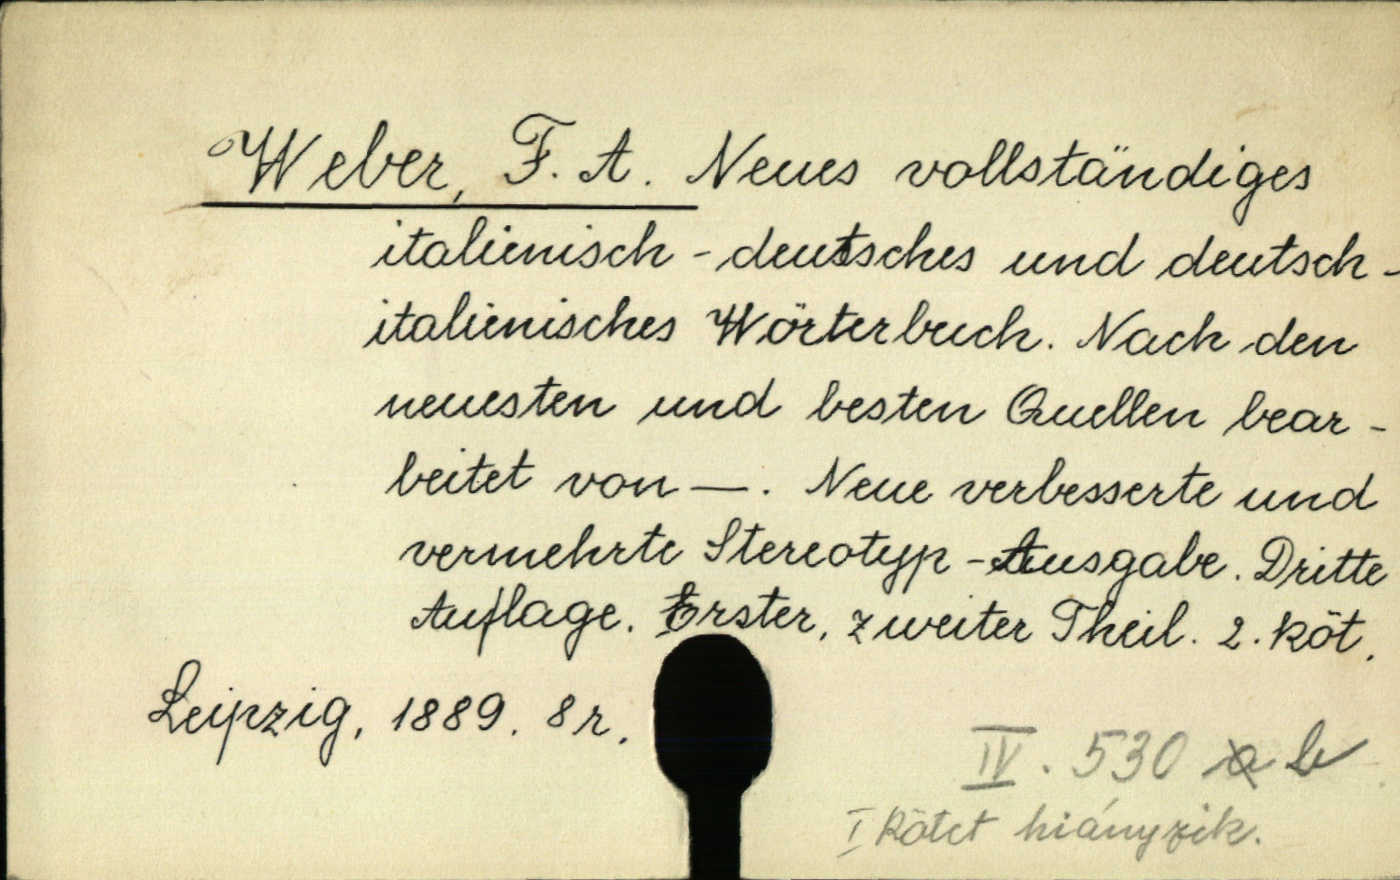 Weber, F. A. Neues vollständiges
italienisch-deutsches und deutsch-
italienisches Wörterbuch. Nach den
neuesten und besten Quellen bear-
beitet von —. Neue verbesserte und
vermehrte Stereotyp-Ausgabe. Dritte
Auflage. Erster, zweiter Theil. 2. köt.
Leipzig, 1889. 8r.
IV. 530 a b
I kötet hiányzik.